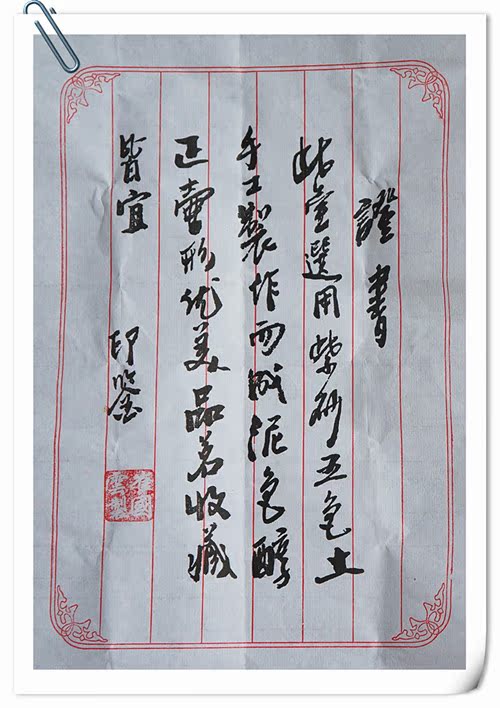 證書
此壺選用紫砂五色土
手工製作而成泥色醇
正壺形优美品茗收藏
皆宜
印鉴